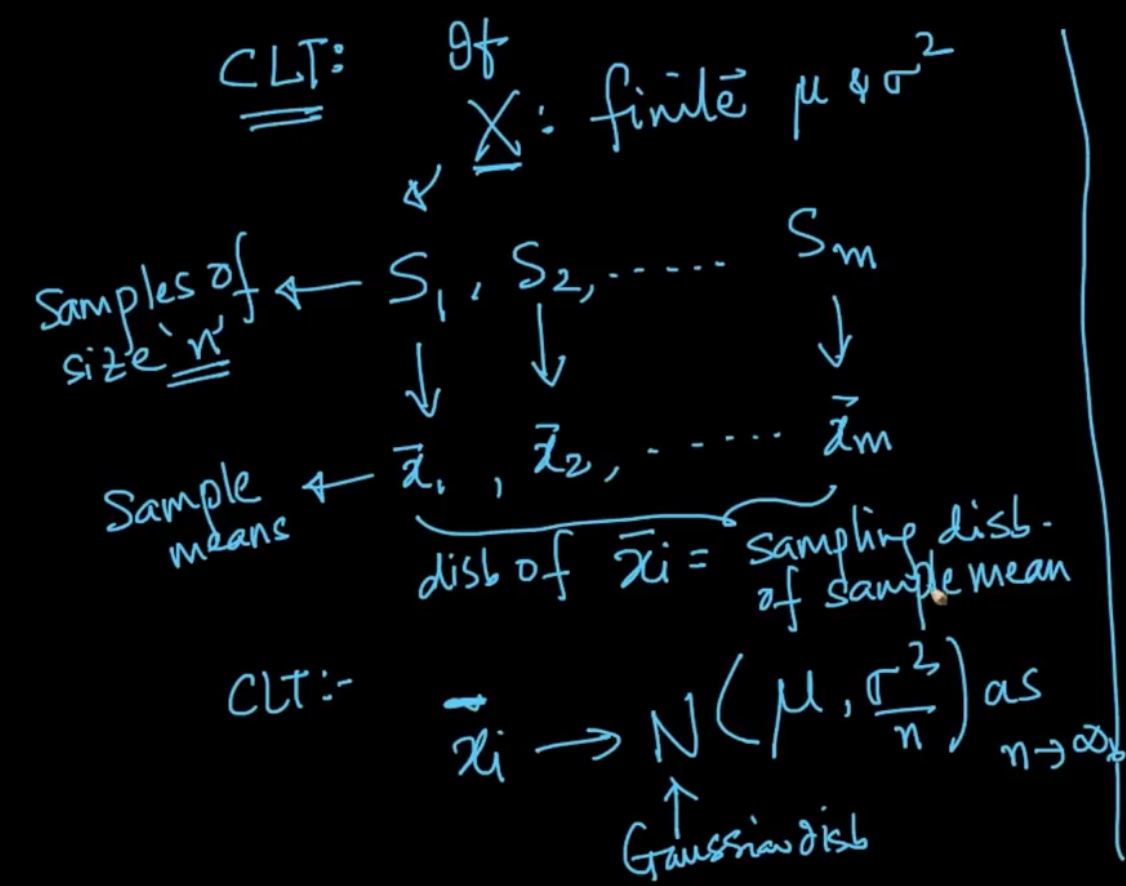 CLT: If
X: finite μ & σ²
S₁, S₂, ...... Sₘ
Samples of
size 'n'
x̄₁, x̄₂, ...... x̄ₘ
Sample
means
disb of x̄ᵢ = sampling disb.
of sample mean
CLT:- x̄ᵢ → N(μ, σ²/n) as
n→∞
Gaussian disb